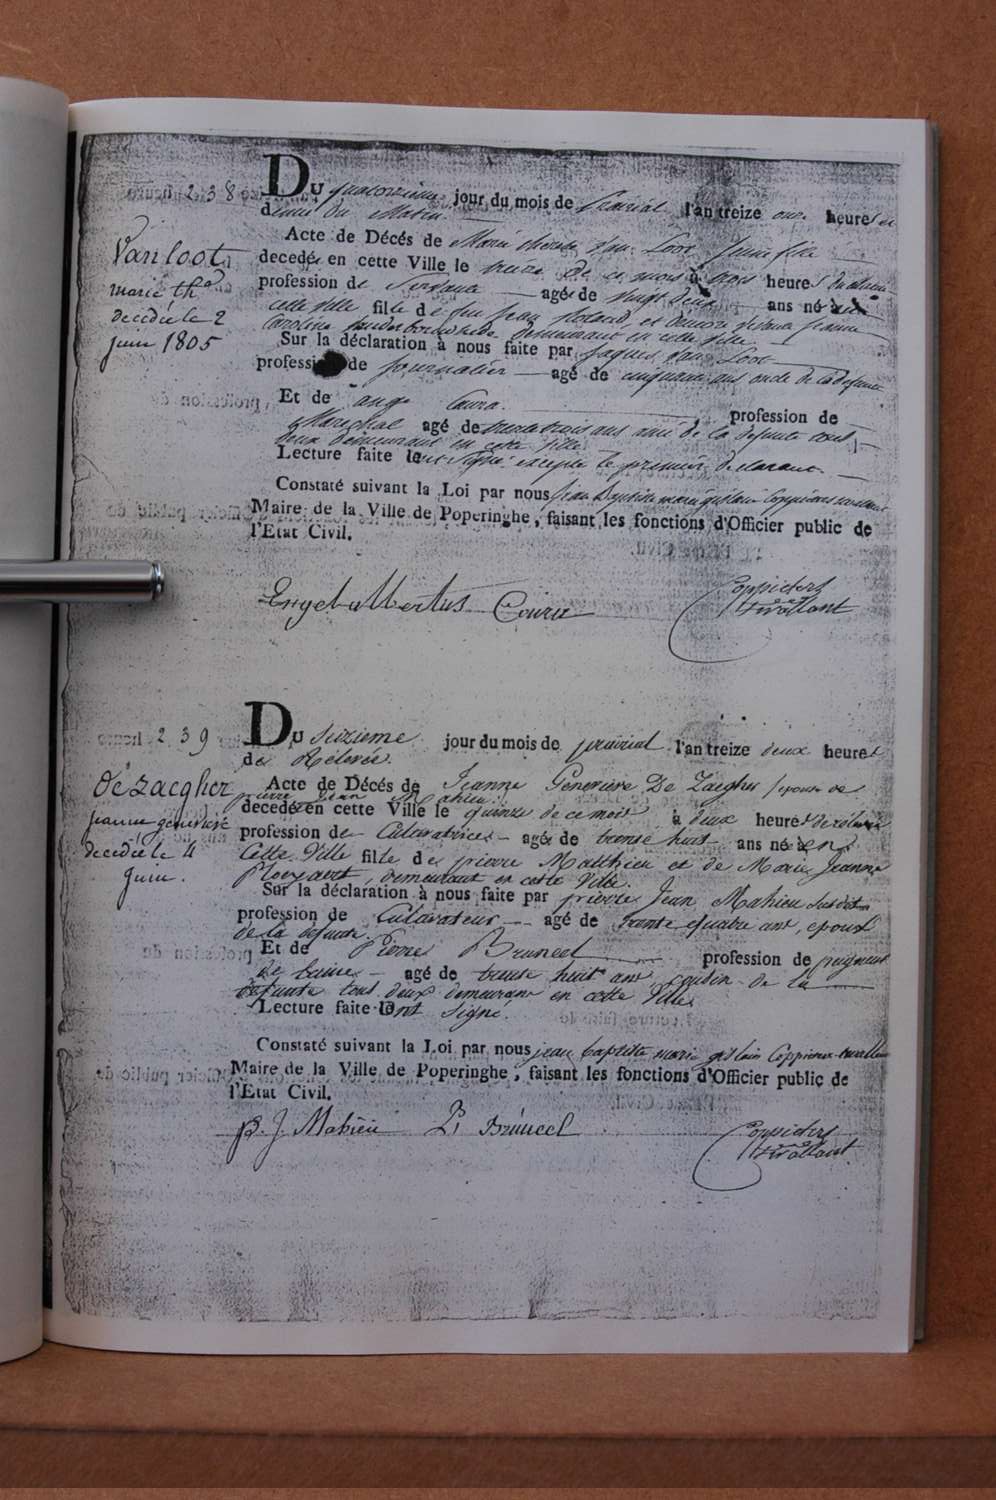 238
Vanloot
marie thé
decédée le 2
juin 1805
Du quatorzieme jour du mois de prairial l'an treize onze heures et
demie du Matin.
Acte de Décés de Marie therese Van Loot jeune fille
decedée en cette Ville le treize de ce mois à trois heures du matin
profession de Servante agée de vingt deux ans né à en
cette ville fille de feu jean et encore
Caroline demeurant en cette ville
Sur la déclaration à nous faite par jaques Van Loot
profession de journalier agé de cinquante ans oncle de la defunte
Et de ange Coura. profession de
Marechal agé de trente trois ans ami de la defunte tous
deux demeurant en cette ville
Lecture faite le ont signé excepté le premier declarant.
Constaté suivant la Loi par nous jean Baptiste marie gislain Coppieters
Maire de la Ville de Poperinghe, faisant les fonctions d'Officier public de
l'Etat Civil.
Engel Albertus Coura
Coppieters
T'wallant
239
De Zaegher
jeanne genevieve
decédée le 4
juin.
Du Suzieme jour du mois de prairial l'an treize deux heures
de Relevée.
Acte de Décés de Jeanne Genevieve De Zaegher épouse de
pierre jean Mahieu
decedée en cette Ville le quinze de ce mois à deux heures de relevée
profession de Culavatrice agée de trente huit ans né à en
Cette Ville fille de pierre Matthieu et de Marie Jeanne
demeurant en cette Ville.
Sur la déclaration à nous faite par pierre Jean Mahieu susdit
profession de Culavateur agé de trente quatre ans, epoux
de la defunte.
Et de Pierre Bruneel profession de peigneur
de laine agé de trente huit ans cousin de la
defunte tous deux demeurant en cette Ville
Lecture faite l'ont signé.
Constaté suivant la Loi par nous jean baptiste marie gislain Coppieters
Maire de la Ville de Poperinghe, faisant les fonctions d'Officier public de
l'Etat Civil.
p. J. Mahieu P. Bruneel
Coppieters
T'wallant